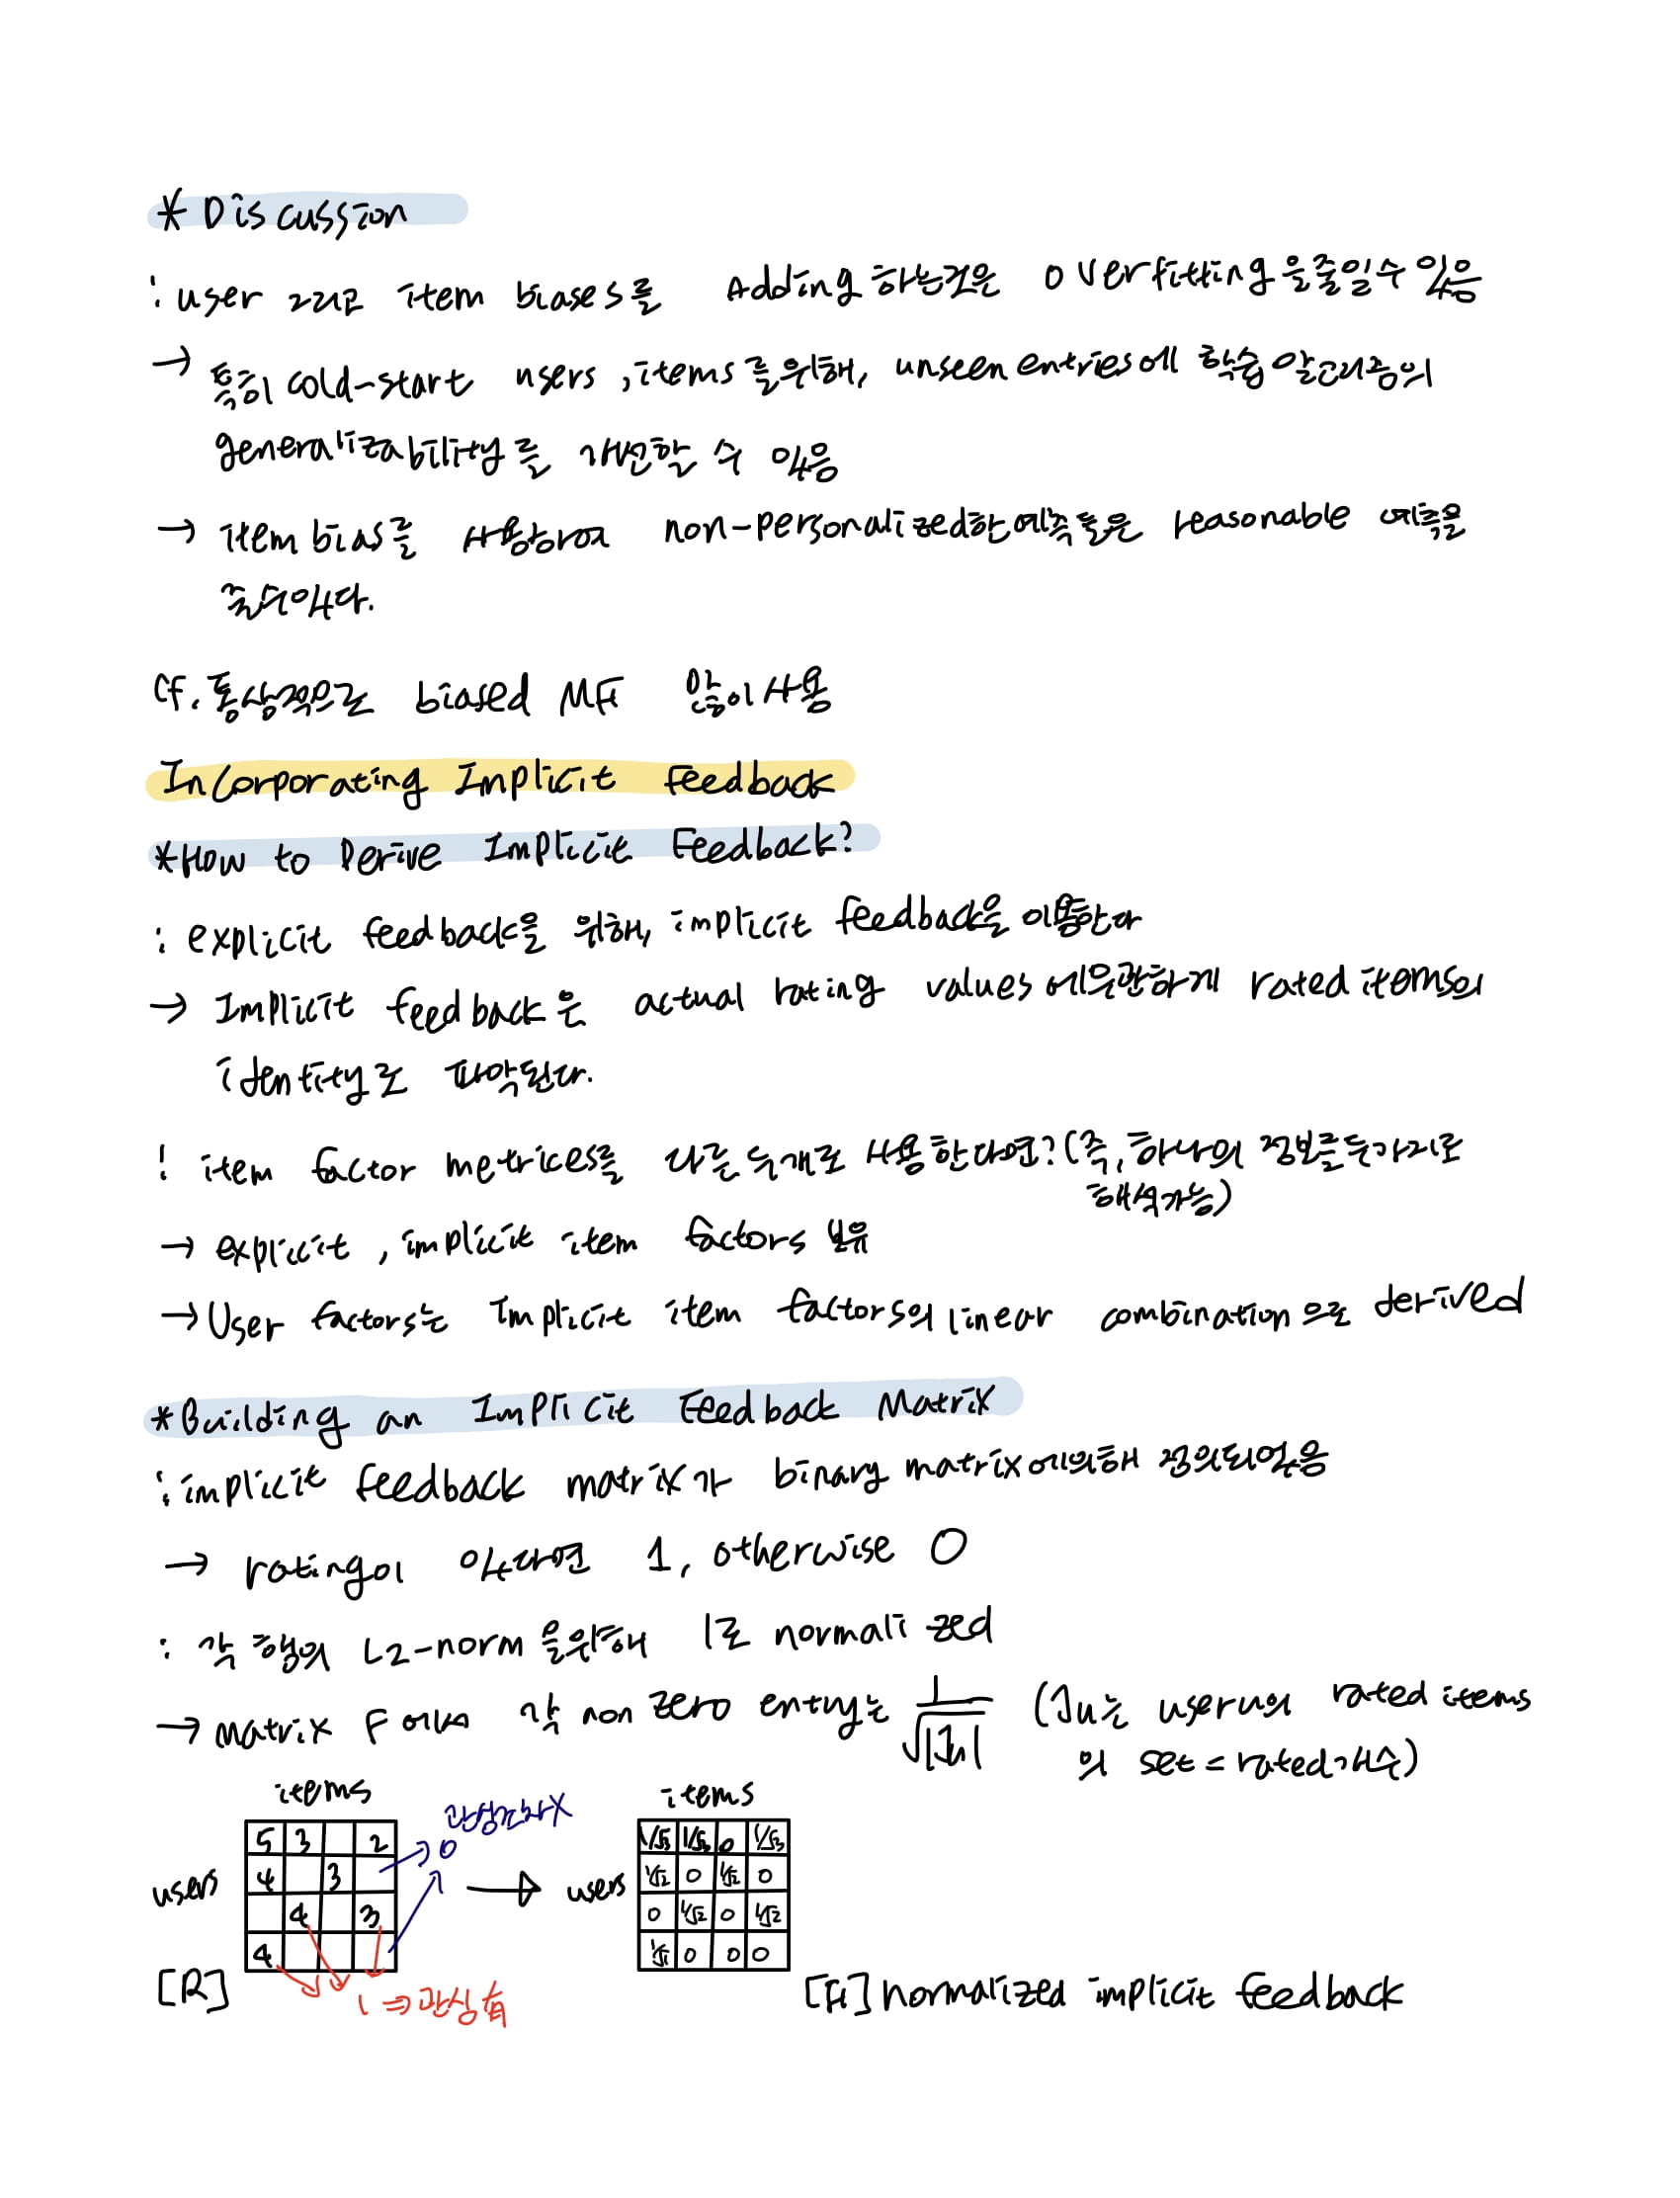 * Discussion
: user 그리고 item biases를 Adding 하는것은 overfitting을 줄일수 있음
→ 특히 cold-start users, items를위해, unseen entries에 학습 알고리즘의
generalizability를 개선할 수 있음
→ item bias를 사용하여 non-personalized한예측들은 reasonable 예측을
줄수있다.
cf. 통상적으로 biased MF 많이 사용
Incorporating Implicit feedback
*How to Derive Implicit Feedback?
: explicit feedback을 위해, implicit feedback을 이용한다
→ Implicit feedback은 actual rating values에무관하게 rated items의
identity로 파악된다.
: item factor metrices를 다른 두개로 사용한다면? (즉, 하나의 정보를두가지로
해석가능)
→ explicit, implicit item factors 보유
→ User factors는 Implicit item factors의 linear combination으로 derived
*Building an Implicit Feedback Matrix
: implicit feedback matrix가 binary matrix에의해 정의되었음
→ rating이 있다면 1, otherwise 0
: 각 행의 L2-norm을위해 1로 normalized
→ matrix F에서 각 non zero entry는 1/√|Iu| (Iu는 user u의 rated items
의 set = rated개수)
items
관심조차X
items
5 3 2
→ 0
1/√3 1/√3 0 1/√3
users
4 3
→
users
1/√2 0 1/√2 0
4 3
0 1/√2 0 1/√2
4
1/√1 0 0 0
[R]
1 ⇒ 관심 有
[F] normalized implicit feedback